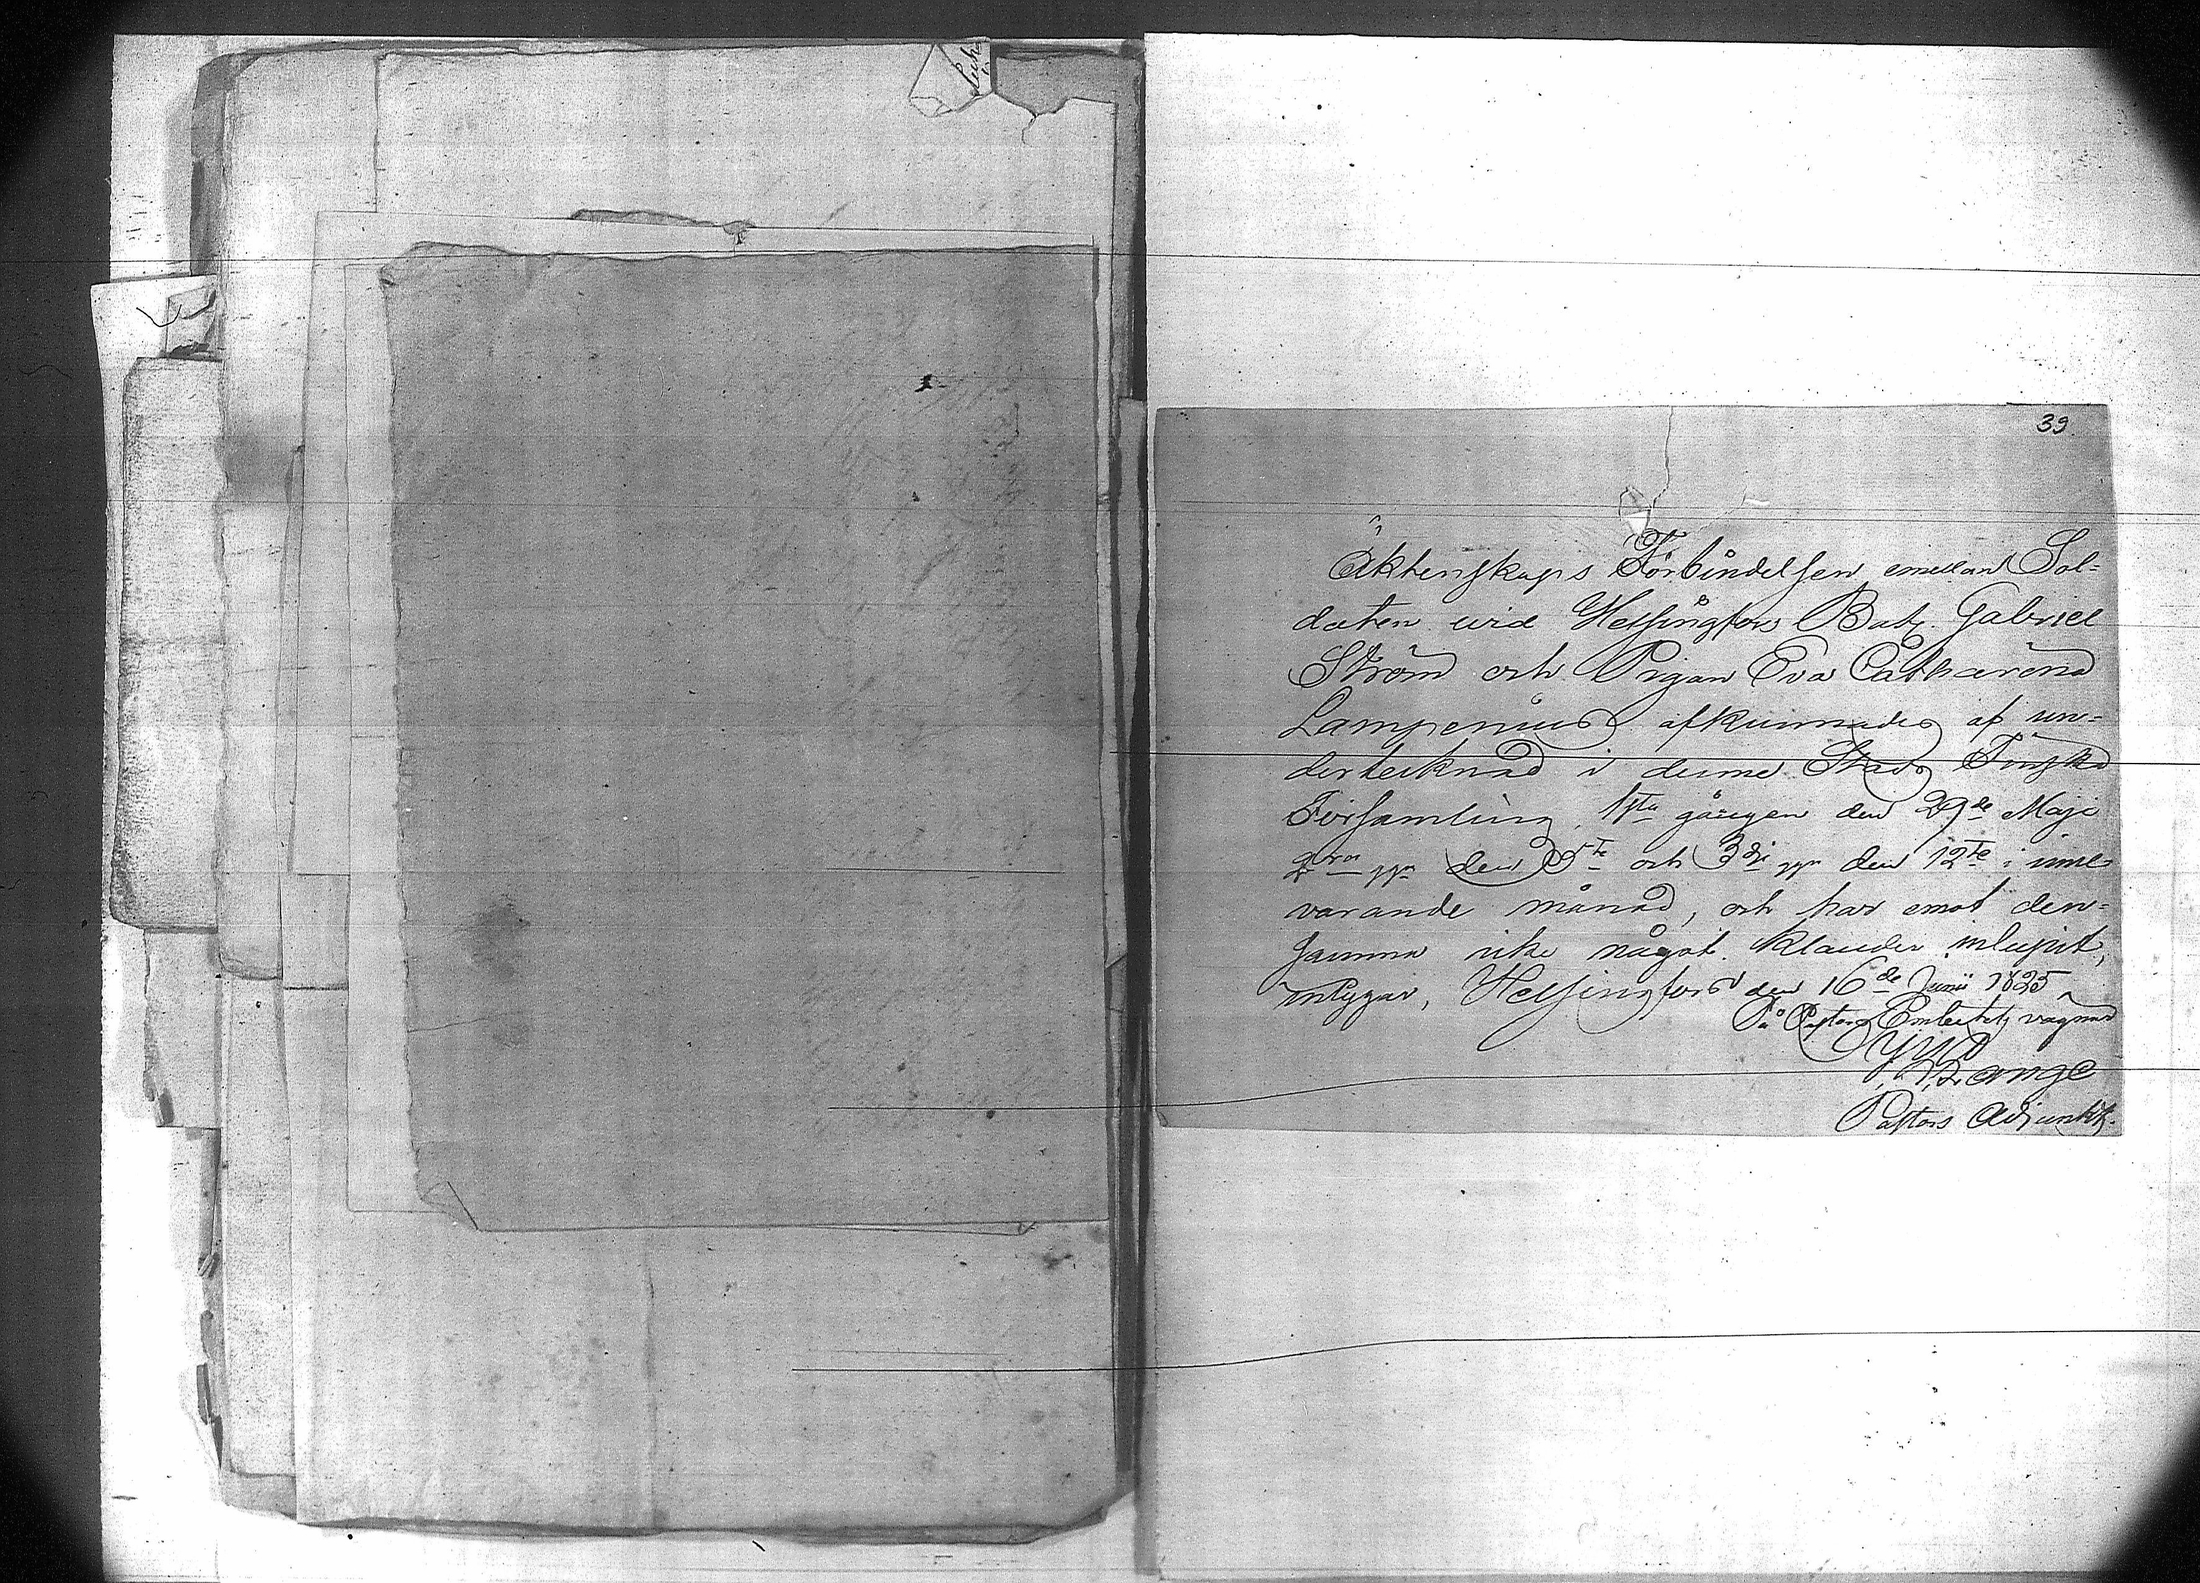 39
Äktenskaps Förbindelsen emellan Sol-
daten wid Helsingfors Batj. Gabriel
Ström och Pigan Eva Catharina
Lampenius afkunnades af un-
dertecknad i denne Stads Finska
Församling, 1sta gången den 29de Maji
2dra ggn den 5te och 3dje ggn den 12te i inne-
varande månad, och har emot den-
samma icke något klander inlupit,
intygar, Helsingfors den 16de Junii 1825
På Pastors Embetets vägnar
Lange
Pastors Adjunkt.